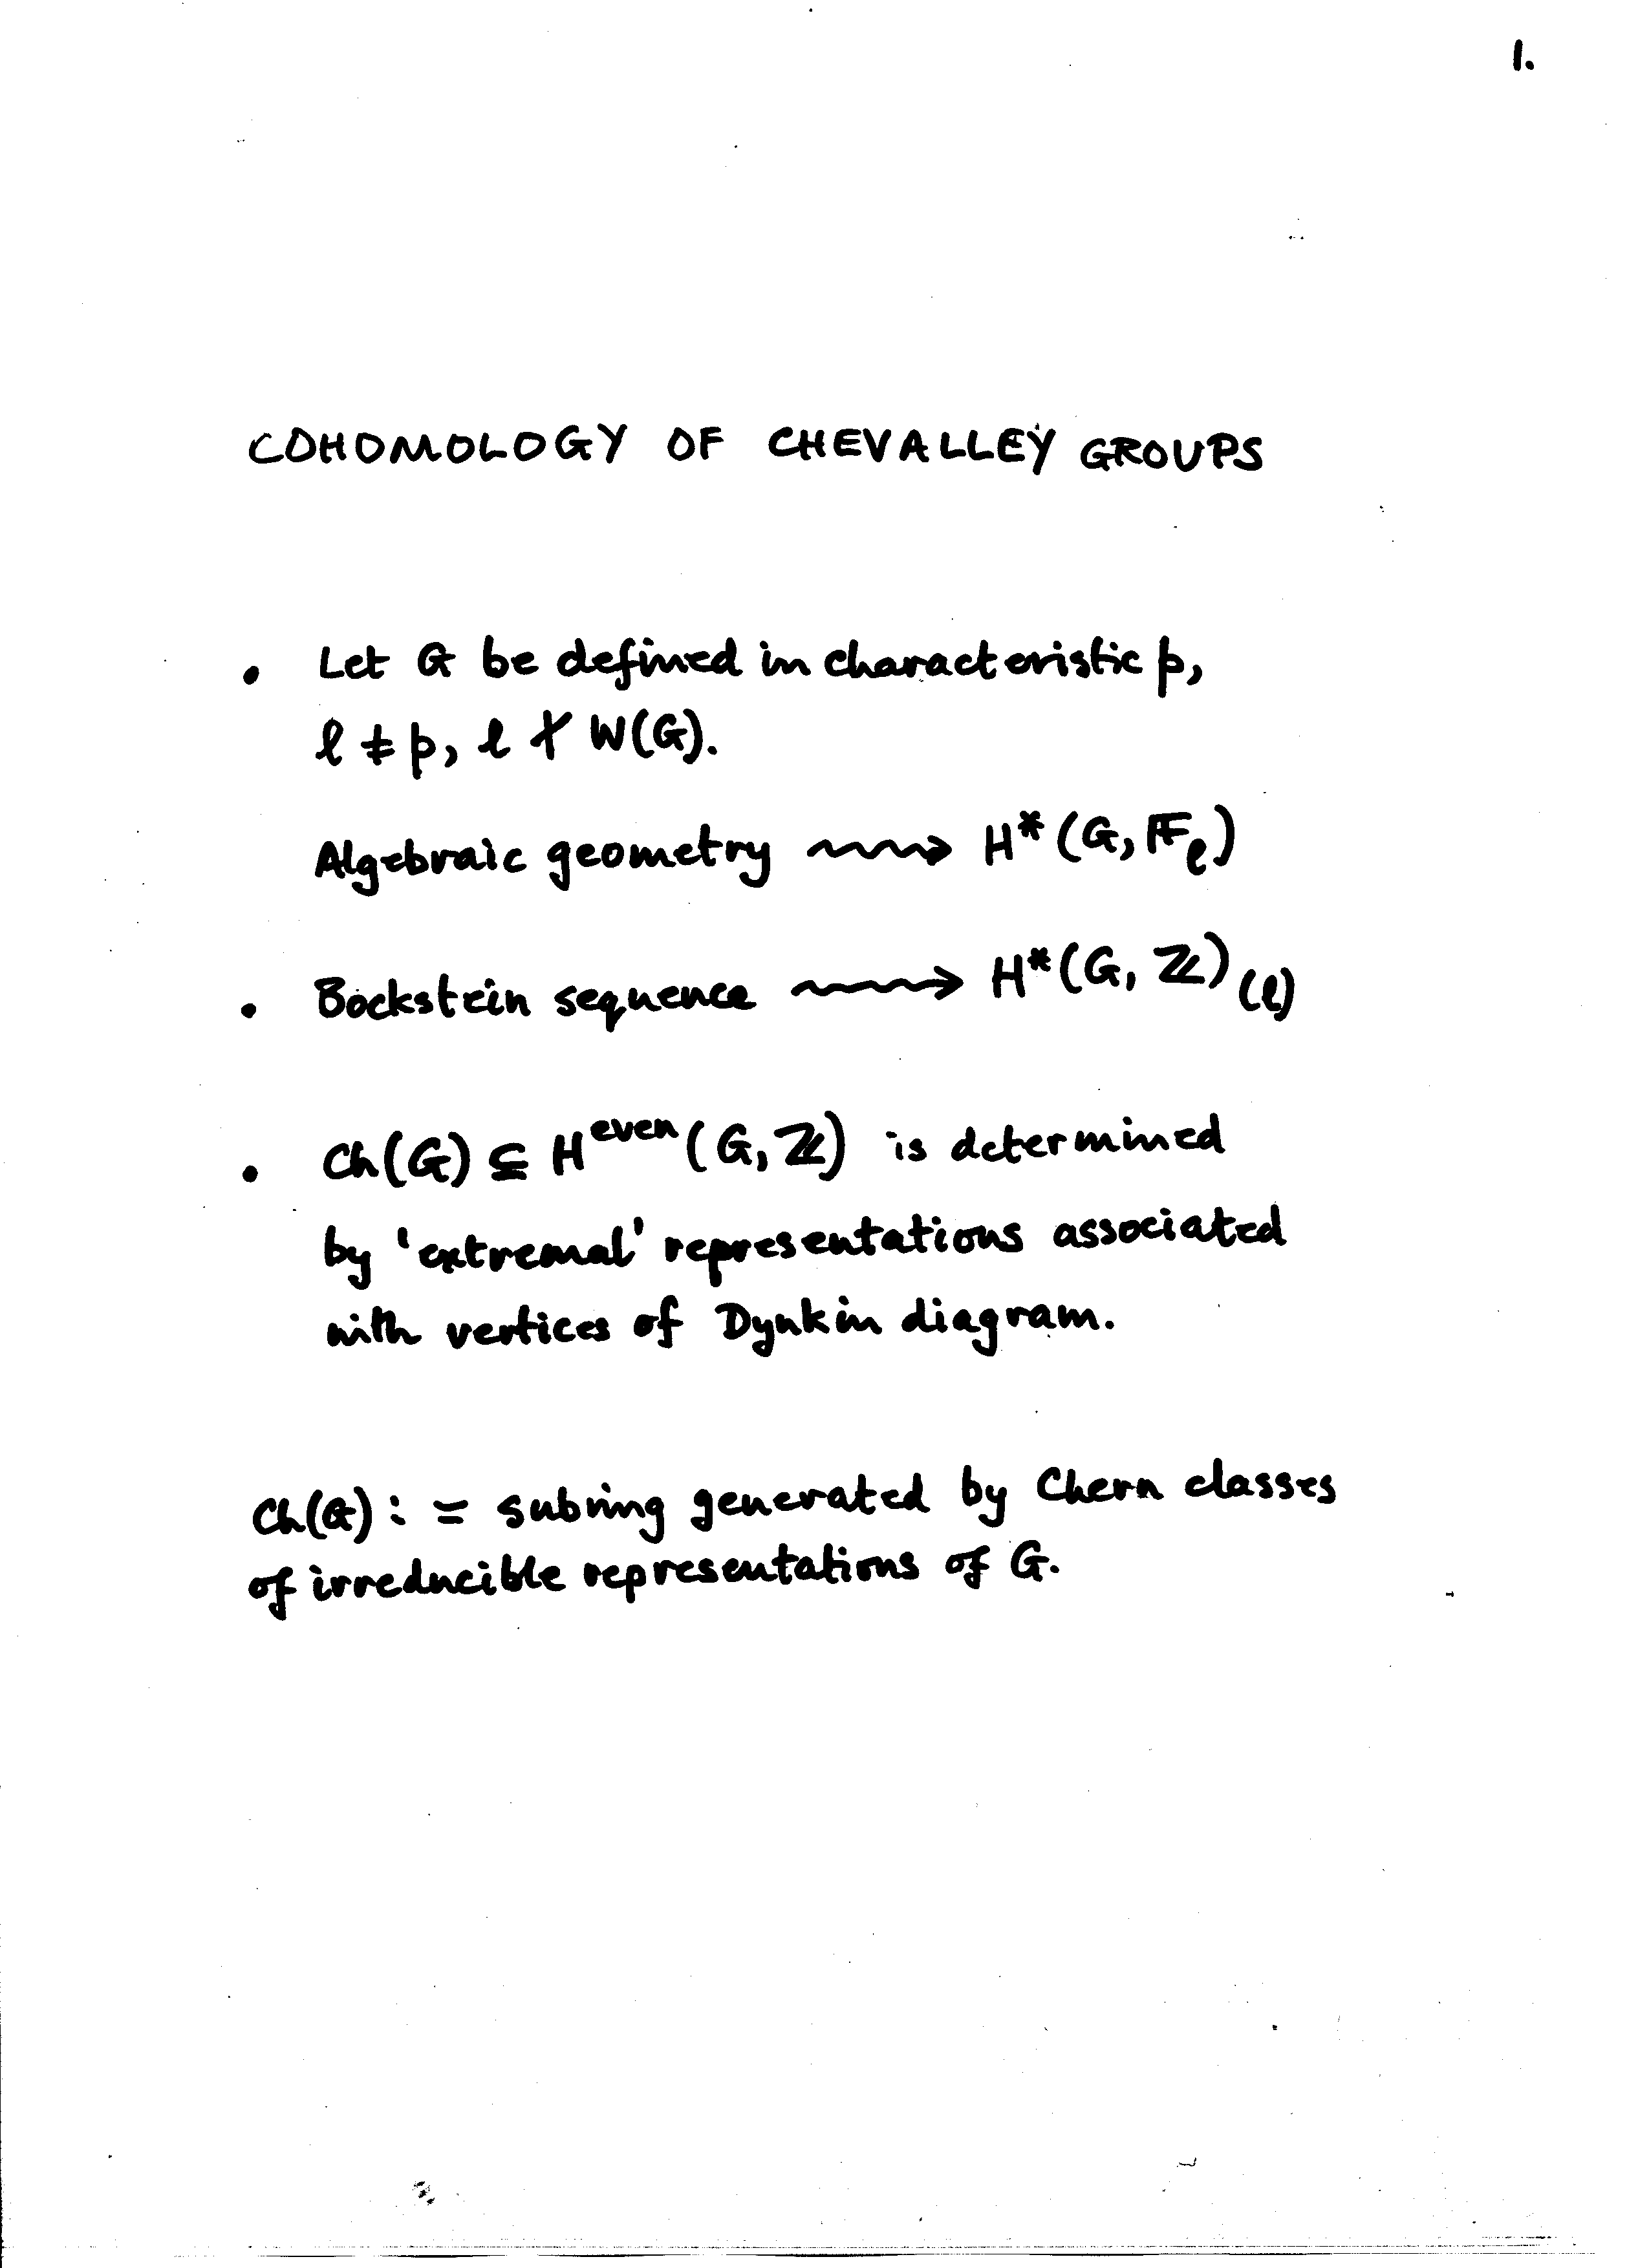 1.
COHOMOLOGY OF CHEVALLEY GROUPS
• Let G be defined in characteristic p,
ℓ ≠ p, ℓ ∤ W(G).
Algebraic geometry ⟿ H*(G, 𝔽_ℓ)
• Bockstein sequence ⟿ H*(G, ℤ)_(ℓ)
• Ch(G) ⊆ H^even(G, ℤ) is determined
by 'extremal' representations associated
with vertices of Dynkin diagram.
Ch(G) : = subring generated by Chern classes
of irreducible representations of G.